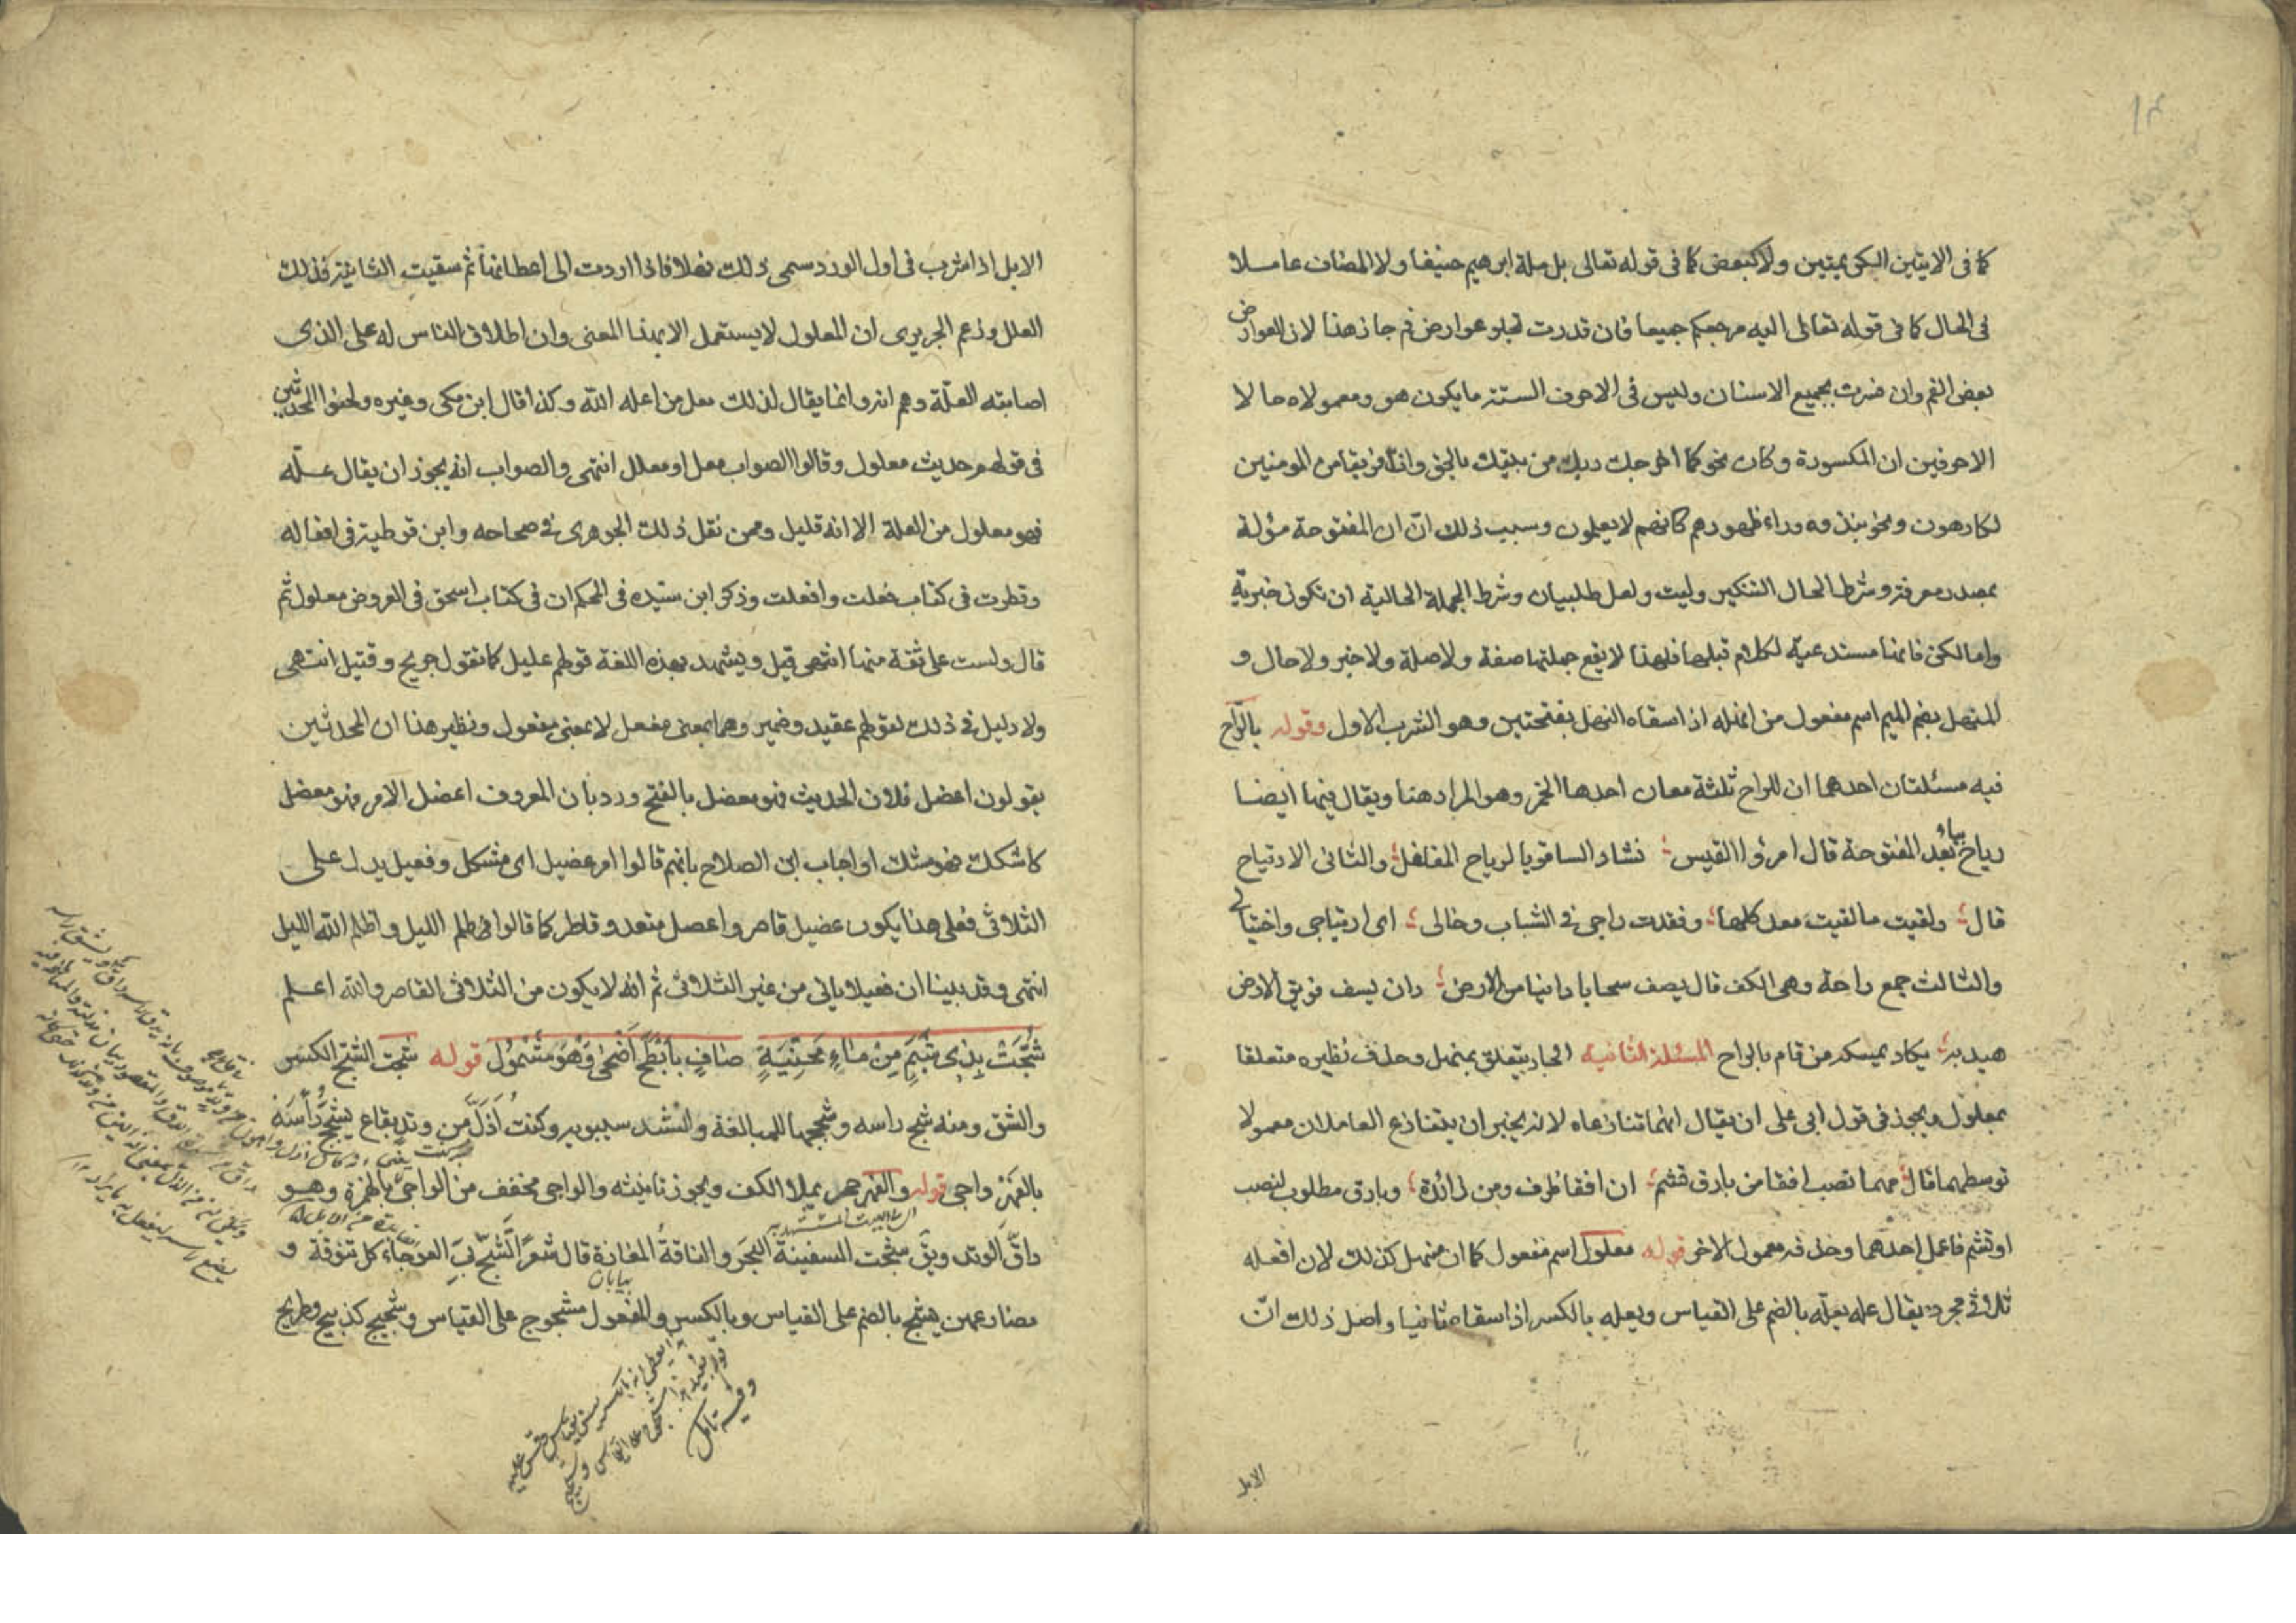 ١٣
كما فى الايتين البكى بميتين ولا كبعض كما فى قوله تعالى بل ملة ابرهيم حنيفا ولا المضاف عاملا
فى الحال كما فى قوله تعالى اليه مرجعكم جميعا فان قدرت تجلو عوارض فم جاز هذا لان العوارض
بعض الفم وان فسرت بجميع الاسنان وليس فى الاحرف الستة ما يكون هو ومعمولاه حالا لا
الاحرفين ان المكسورة وكان نحو كما اخرجك ربك من بيتك بالحق وان فريقا من المومنين
لكارهون ونحو نبذوه وراء ظهورهم كانهم لا يعلمون وسبب ذلك ان ان المفتوحة مؤلة
بمصدر معرفة وشرط الحال التنكير وليت ولعل طلبيان وشرط الجملة الحالية ان تكون خبرية
واما لكن فانها مستدعية لكلام قبلها فلهذا لا يقع جملتها صفة ولا صلة ولا خبر ولا حال و
المنهل بضم الميم اسم مفعول من انهله اذا سقاه النهل بفتحتين وهو الشرب الاول وقوله بالراح
فيه مسئلتان احدهما ان للراح ثلثة معان احدها الخمر وهو المراد هنا ويقال فيها ايضا
رياح بياء بعد المفتوحة قال امرؤ القيس نشاو الساقويا لرياح المفلفل والثانى الارتياح
قال ولقيت ما لقيت معد كلها وفقدت راحى فى الشباب وخالى اى ارتياحى واختيالى
والثالث جمع راحة وهى الكف قال يصف سحابا دانيا من الارض دان يسف فويق الارض
هيدبه يكاد يمسكه من قام بالراح المسئلة الثانية الجار يتعلق بمنهل وحذف نظيره متعلقا
بمعلول ويجوز فى قول ابى على ان يقال انهما تنازعاه لانه يجيز ان يتنازع العاملان معمولا
توسطهما قال مهما تصب افقا من بارق تشم ان افقا ظرف ومن زائدة وبارق مطلوب لتصب
او تشم فاعمل احدهما وحذف معمول الاخر قوله معلول اسم مفعول كما ان منهل كذلك لان افعله
ثلاثى مجرد يقال عله يعله بالضم على القياس ويعله بالكسر اذا سقاه ثانيا واصل ذلك ان
الابل
الابل اذا شرب فى اول الورد سمى ذلك نهلا فاذا اردت الى اعطانها ثم سقيت الثانية فذلك
العلل وزعم الحريرى ان المعلول لا يستعمل الا بهذا المعنى وان اطلاق الناس له على الذى
اصابته العلة وهم انه وانما يقال لذلك معل من اعله الله وكذا قال ابن مكى وغيره ولحنوا المحدثين
فى قولهم حديث معلول وقالوا الصواب معل او معلل انتهى والصواب انه يجوز ان يقال عله
فهو معلول من العلة الا انه قليل وممن نقل ذلك الجوهرى فى صحاحه وابن قوطية فى افعاله
وقطرب فى كتاب فعلت وافعلت وذكر ابن سيده فى المحكم ان فى كتاب اسحق فى العروض معلول ثم
قال ولست على ثقة منها انتهى قيل ويشهد بهذه اللغة قولهم عليل كما تقول جريح وقتيل انتهى
ولا دليل فى ذلك لقولهم عقيد وضمير وهما بمعنى مفعل لا بمعنى مفعول ونظير هذا ان المحدثين
يقولون اعضل فلان الحديث فهو معضل بالفتح ورد بان المعروف اعضل الامر فهو معضل
كاشكل فهو مشكل او اجاب ابن الصلاح بانهم قالوا امر عضيل اى مشكل وفعيل يدل على
الثلاثى فعلى هذا يكون عضيل قاصر واعضل متعد وقاطر كما قالوا فى ظلم الليل واظلم الله الليل
انتهى وقد بينا ان فعيلا ياتى من غير الثلاثى ثم انه لا يكون من الثلاثى القاصر والله اعلم
شُجَّتْ بِذِى شَبَمٍ مِنْ مَاءِ مَحْنِيَةٍ صَافٍ بِأَبْطَحَ أَضْحى وَهْوَ مَشْمُولُ قوله شجت الشج الكسر
والشق ومنه شج راسه وشججها للمبالغة وانشد سيبويه وكنت اذل من وتد بقاع يشجج راسه
بالفهر واجى قوله والفهر حجر بملا الكف ويجوز تانيثه والواجى مخفف من الواجئ بالهمزة وهو
داق الوتد ويق شجت السفينة البحر والناقة المفازة قال شعرا تشج بى العوجاء كل تنوفة و
مضارعهن يشج بالضم على القياس وبالكسر والمفعول مشجوج على القياس وشجيج كذبيح وطريح
بيابان
وفيه تامل